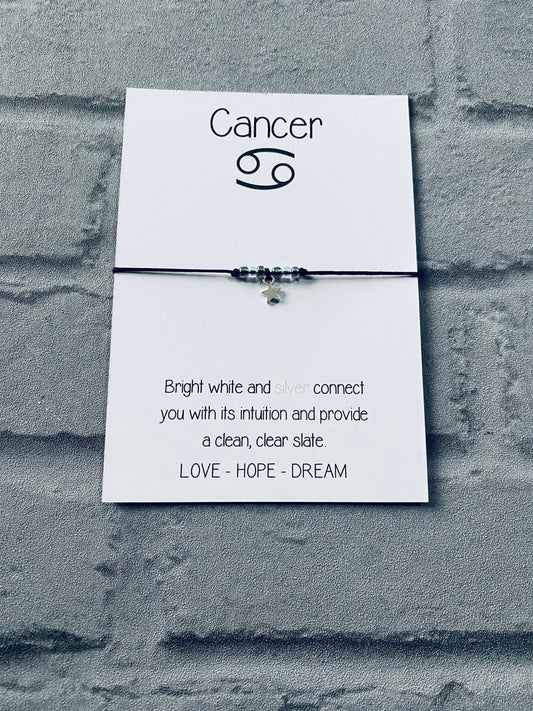 Cancer
♋
Bright white and silver connect
you with its intuition and provide
a clean, clear slate.
LOVE - HOPE - DREAM